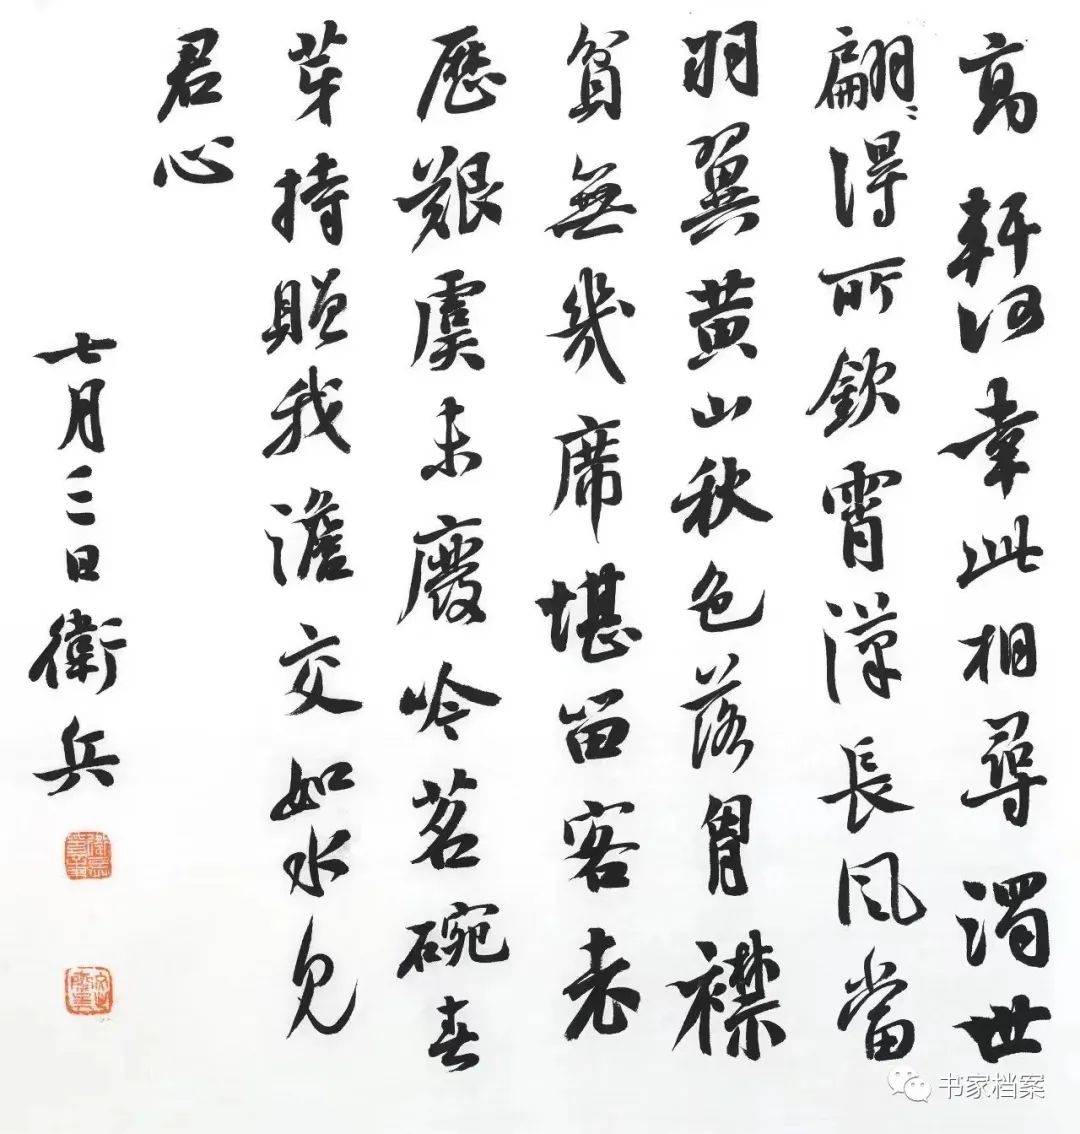 高軒何幸此相尋濁世
翩〻得所欽霄漢長風當
羽翼黄山秋色落胷襟
貧無幾席堪留客老
歷艱虞未廢吟茗碗春
芽持贈我澹交如水見
君心
七月三日衛兵
书家档案